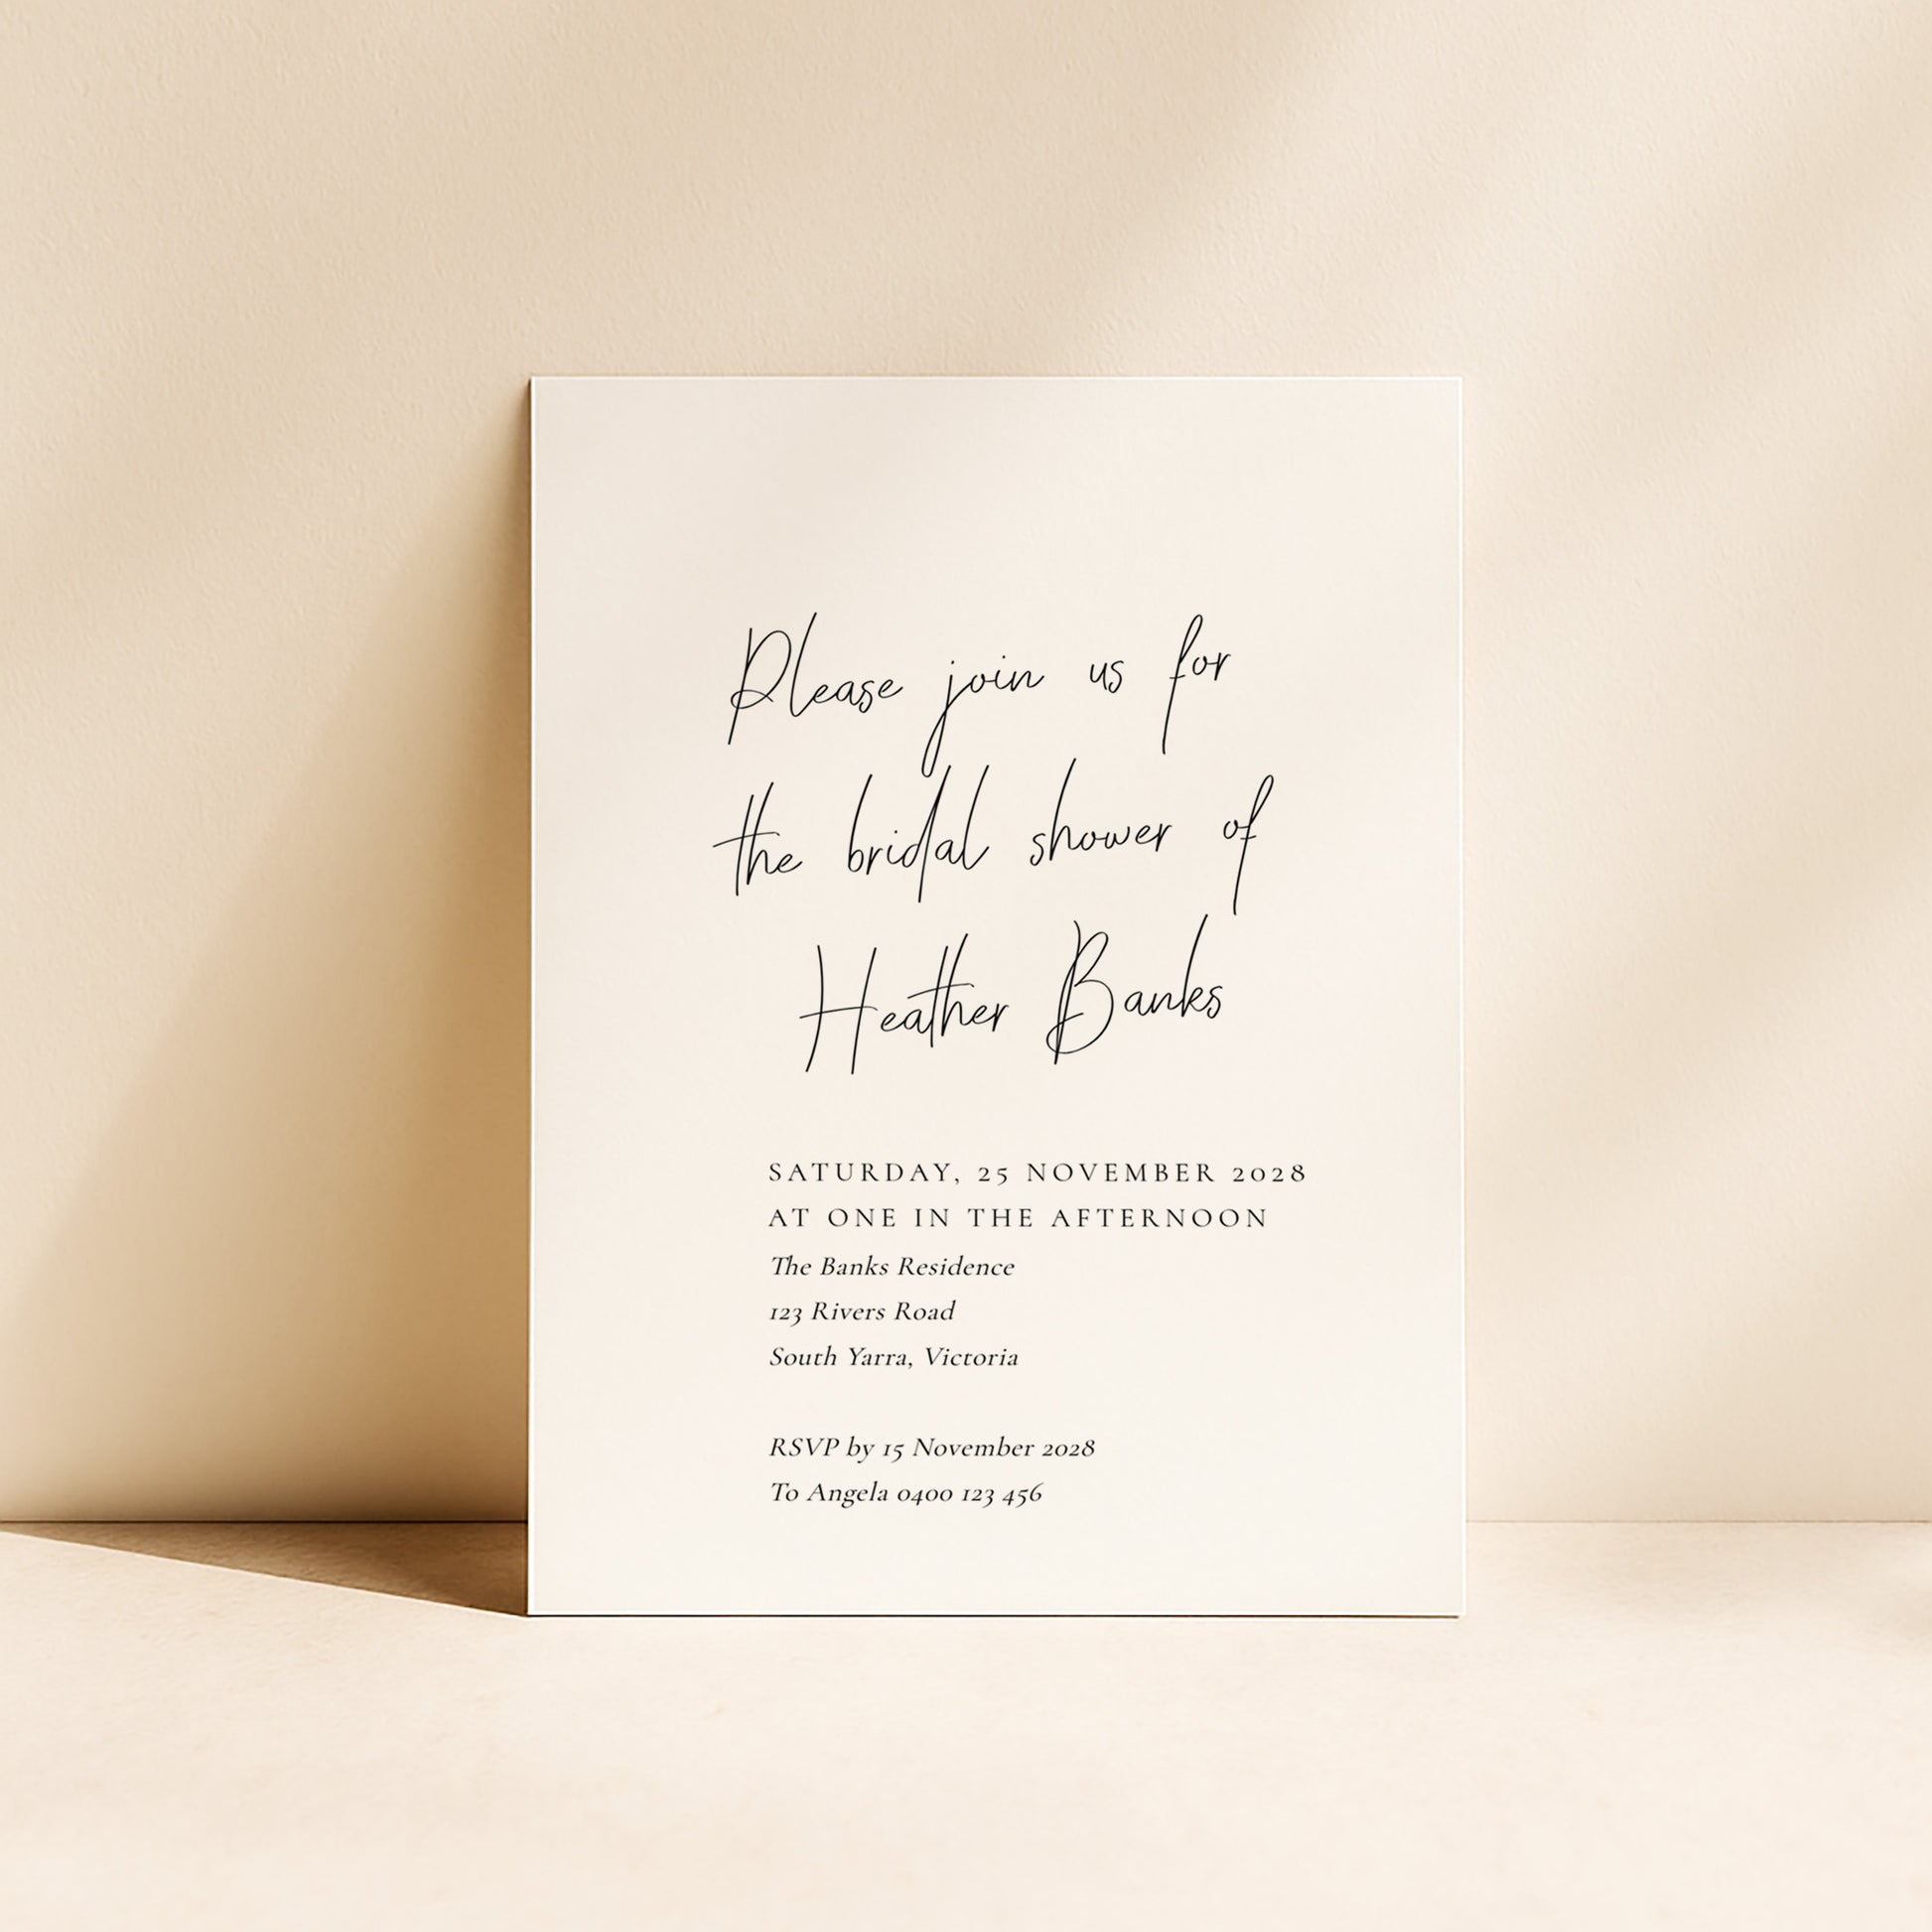 Please join us for
the bridal shower of
Heather Banks
SATURDAY, 25 NOVEMBER 2028
AT ONE IN THE AFTERNOON
The Banks Residence
123 Rivers Road
South Yarra, Victoria
RSVP by 15 November 2028
To Angela 0400 123 456